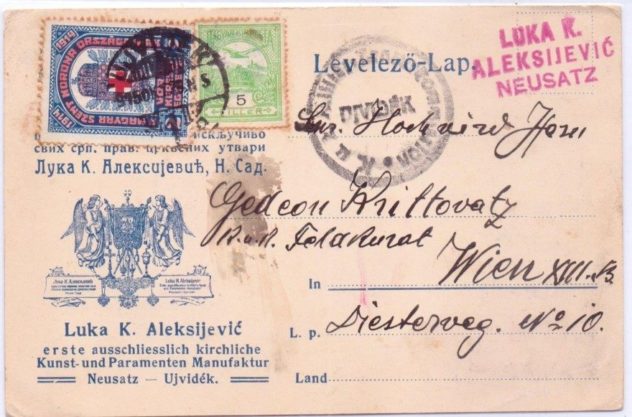 1914 MAGYAR SZENT KORONA ORSZÁGAI 1914
5
FILLER
Levelező-Lap.
LUKA K.
ALEKSIJEVIĆ
NEUSATZ
UJVIDÉK
искључиво
свих срп. прав. црквених утвари
Лука К. Алексијевић, Н. Сад.
Luka K. Aleksijević
erste ausschliesslich kirchliche
Kunst- und Paramenten Manufaktur
Neusatz — Ujvidék.
Sr. Hochwird Herrn
Gedeon Krittovatz
k. u. k. Feldkurat
In Wien XIII.
L. p. Diesterweg. No 10.
Land